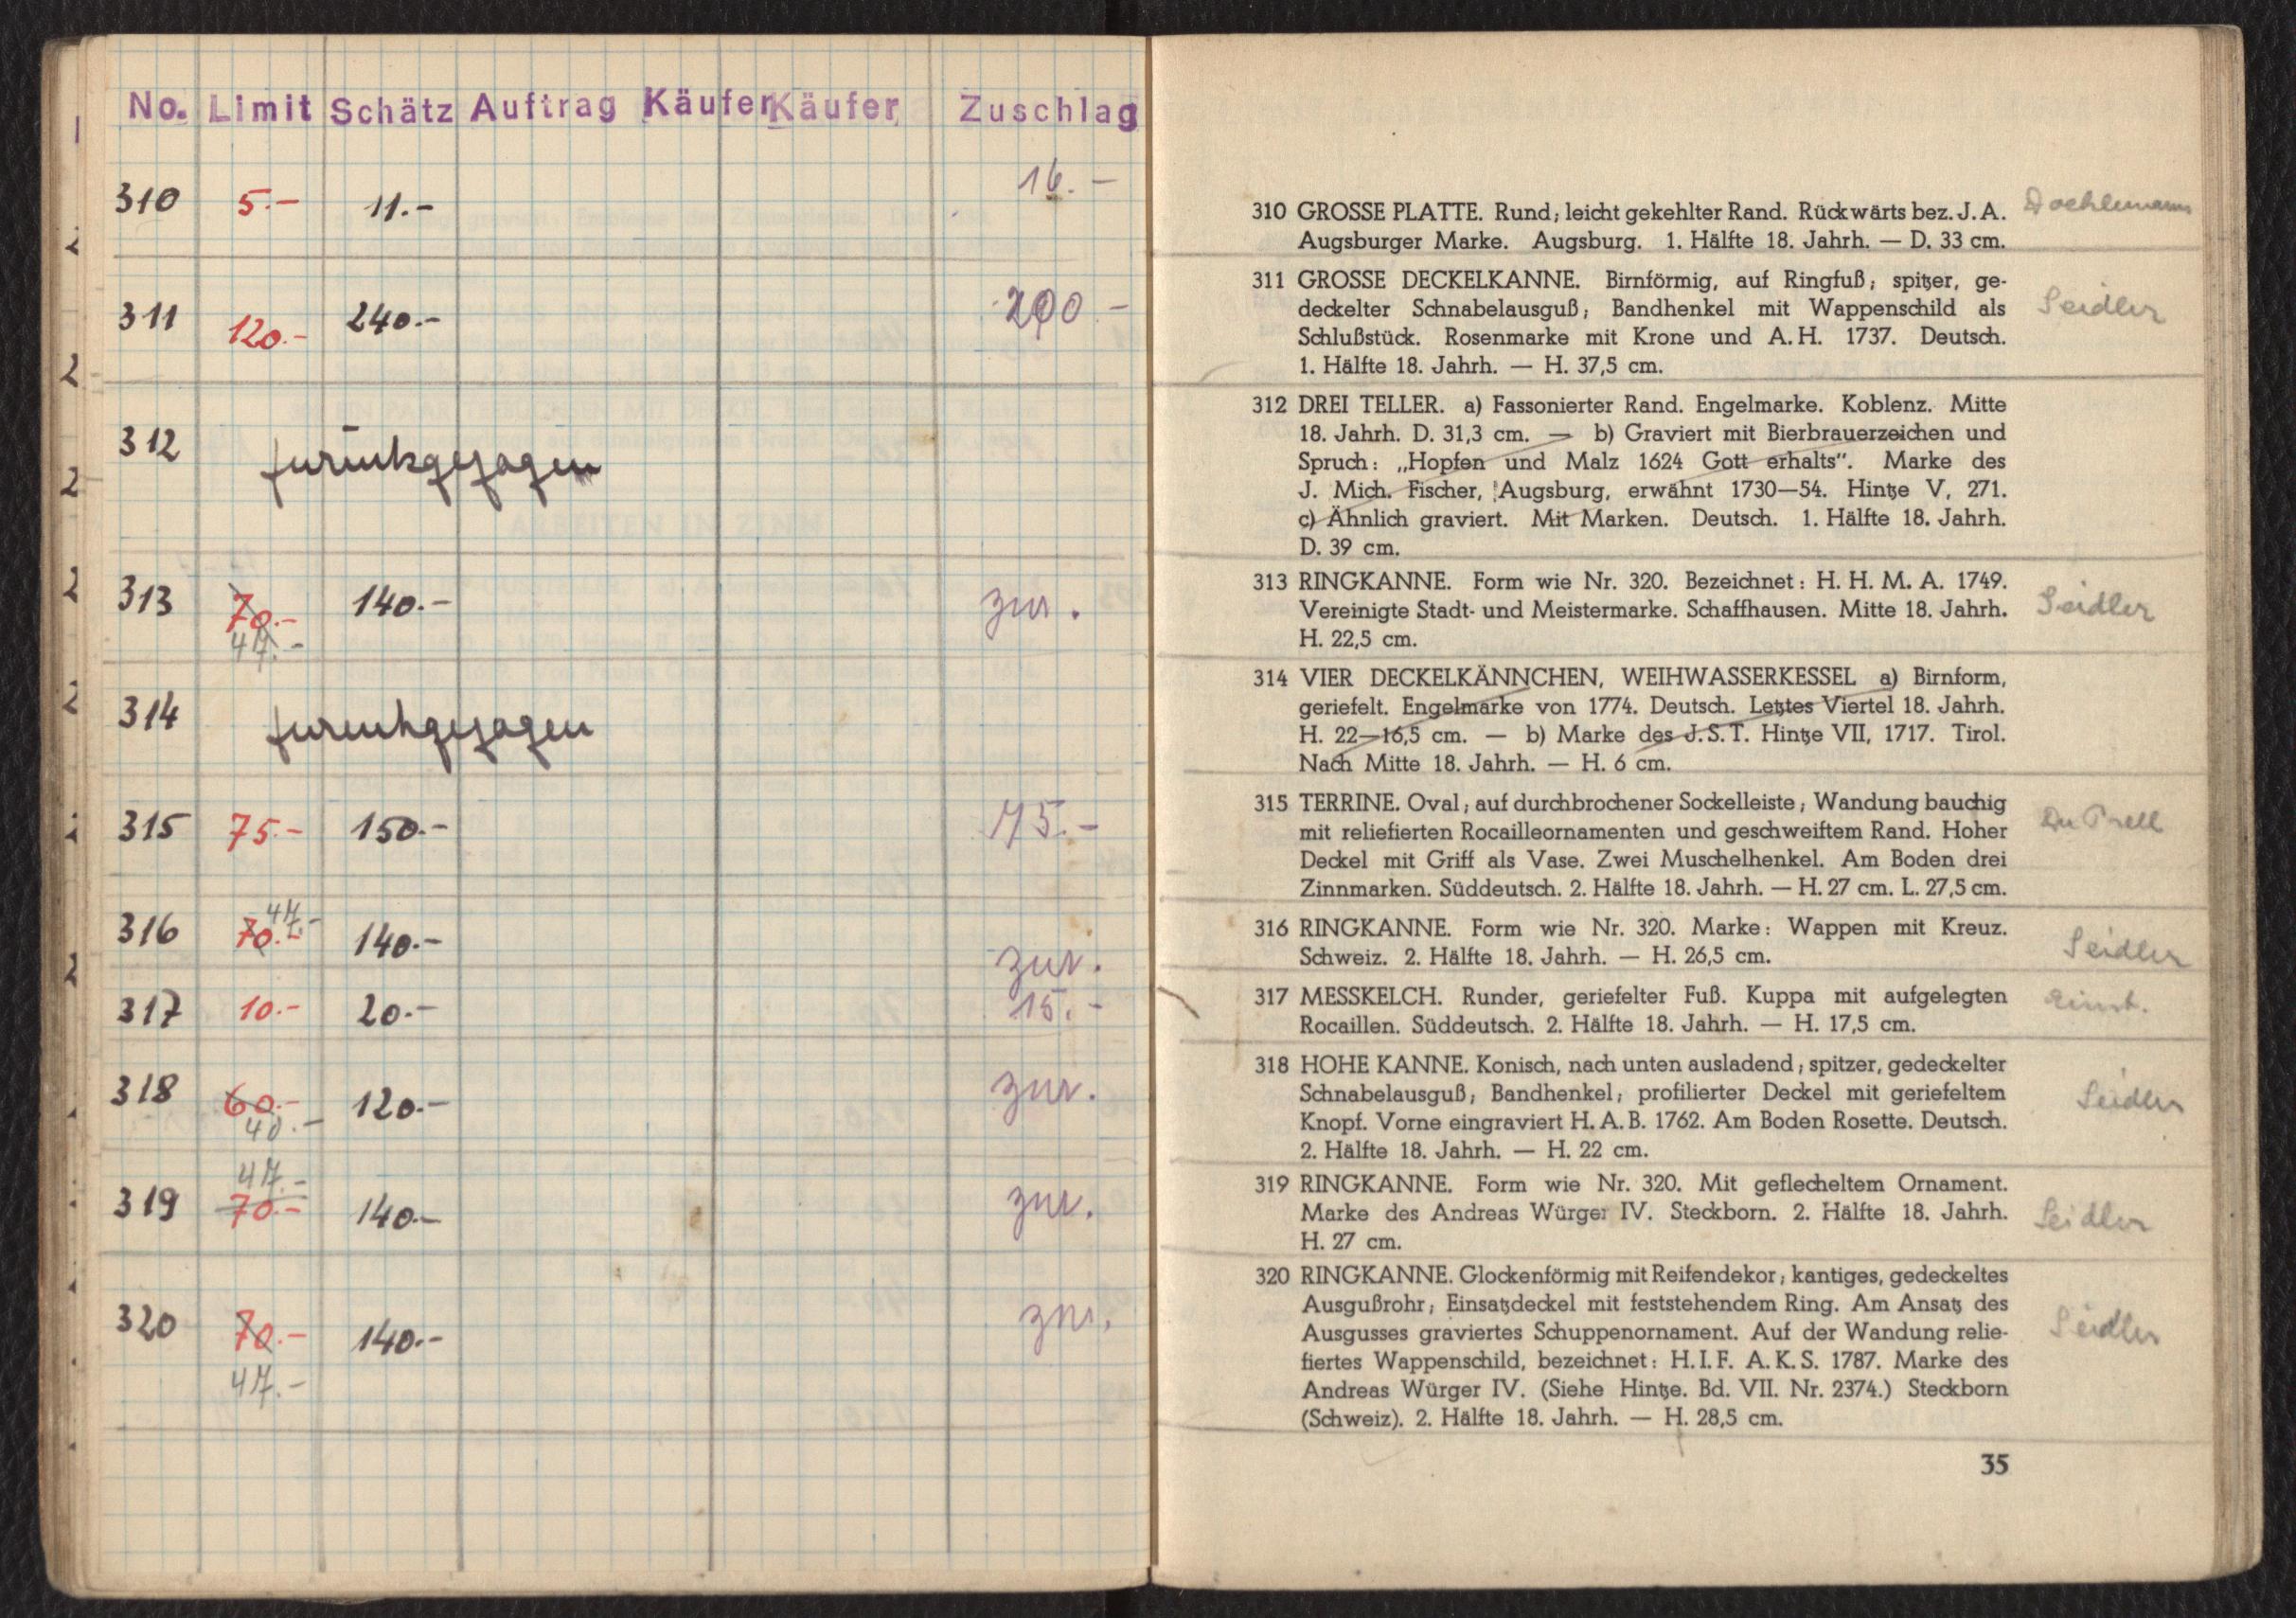 No. Limit Schätz Auftrag Käufer Käufer Zuschlag
310 5.- 11.- 16.-
311 120.- 240.- 200.-
312 zurückgezogen
313 70.- 140.- zur.
47.-
314 zurückgezogen
315 75.- 150.- 75.-
47.-
316 70.- 140.- zur.
317 10.- 20.- 15.-
318 60.- 120.- zur.
40.-
47.-
319 70.- 140.- zur.
320 70.- 140.- zur.
47.-
310 GROSSE PLATTE. Rund; leicht gekehlter Rand. Rückwärts bez. J. A.
Augsburger Marke. Augsburg. 1. Hälfte 18. Jahrh. — D. 33 cm.
311 GROSSE DECKELKANNE. Birnförmig, auf Ringfuß; spitzer, ge-
deckelter Schnabelausguß; Bandhenkel mit Wappenschild als Seidler
Schlußstück. Rosenmarke mit Krone und A. H. 1737. Deutsch.
1. Hälfte 18. Jahrh. — H. 37,5 cm.
312 DREI TELLER. a) Fassonierter Rand. Engelmarke. Koblenz. Mitte
18. Jahrh. D. 31,3 cm. — b) Graviert mit Bierbrauerzeichen und
Spruch: „Hopfen und Malz 1624 Gott erhalts“. Marke des
J. Mich. Fischer, Augsburg, erwähnt 1730—54. Hintze V, 271.
c) Ähnlich graviert. Mit Marken. Deutsch. 1. Hälfte 18. Jahrh.
D. 39 cm.
313 RINGKANNE. Form wie Nr. 320. Bezeichnet: H. H. M. A. 1749.
Vereinigte Stadt- und Meistermarke. Schaffhausen. Mitte 18. Jahrh. Seidler
H. 22,5 cm.
314 VIER DECKELKÄNNCHEN, WEIHWASSERKESSEL a) Birnform,
geriefelt. Engelmarke von 1774. Deutsch. Letztes Viertel 18. Jahrh.
H. 22—16,5 cm. — b) Marke des J. S. T. Hintze VII, 1717. Tirol.
Nach Mitte 18. Jahrh. — H. 6 cm.
315 TERRINE. Oval; auf durchbrochener Sockelleiste; Wandung bauchig
mit reliefierten Rocailleornamenten und geschweiftem Rand. Hoher
Deckel mit Griff als Vase. Zwei Muschelhenkel. Am Boden drei
Zinnmarken. Süddeutsch. 2. Hälfte 18. Jahrh. — H. 27 cm. L. 27,5 cm.
316 RINGKANNE. Form wie Nr. 320. Marke: Wappen mit Kreuz.
Schweiz. 2. Hälfte 18. Jahrh. — H. 26,5 cm. Seidler
317 MESSKELCH. Runder, geriefelter Fuß. Kuppa mit aufgelegten
Rocaillen. Süddeutsch. 2. Hälfte 18. Jahrh. — H. 17,5 cm.
318 HOHE KANNE. Konisch, nach unten ausladend; spitzer, gedeckelter
Schnabelausguß; Bandhenkel; profilierter Deckel mit geriefeltem Seidler
Knopf. Vorne eingraviert H. A. B. 1762. Am Boden Rosette. Deutsch.
2. Hälfte 18. Jahrh. — H. 22 cm.
319 RINGKANNE. Form wie Nr. 320. Mit geflecheltem Ornament.
Marke des Andreas Würger IV. Steckborn. 2. Hälfte 18. Jahrh. Seidler
H. 27 cm.
320 RINGKANNE. Glockenförmig mit Reifendekor; kantiges, gedeckeltes
Ausgußrohr; Einsatzdeckel mit feststehendem Ring. Am Ansatz des
Ausgusses graviertes Schuppenornament. Auf der Wandung relie- Seidler
fiertes Wappenschild, bezeichnet: H. I. F. A. K. S. 1787. Marke des
Andreas Würger IV. (Siehe Hintze. Bd. VII. Nr. 2374.) Steckborn
(Schweiz). 2. Hälfte 18. Jahrh. — H. 28,5 cm.
35